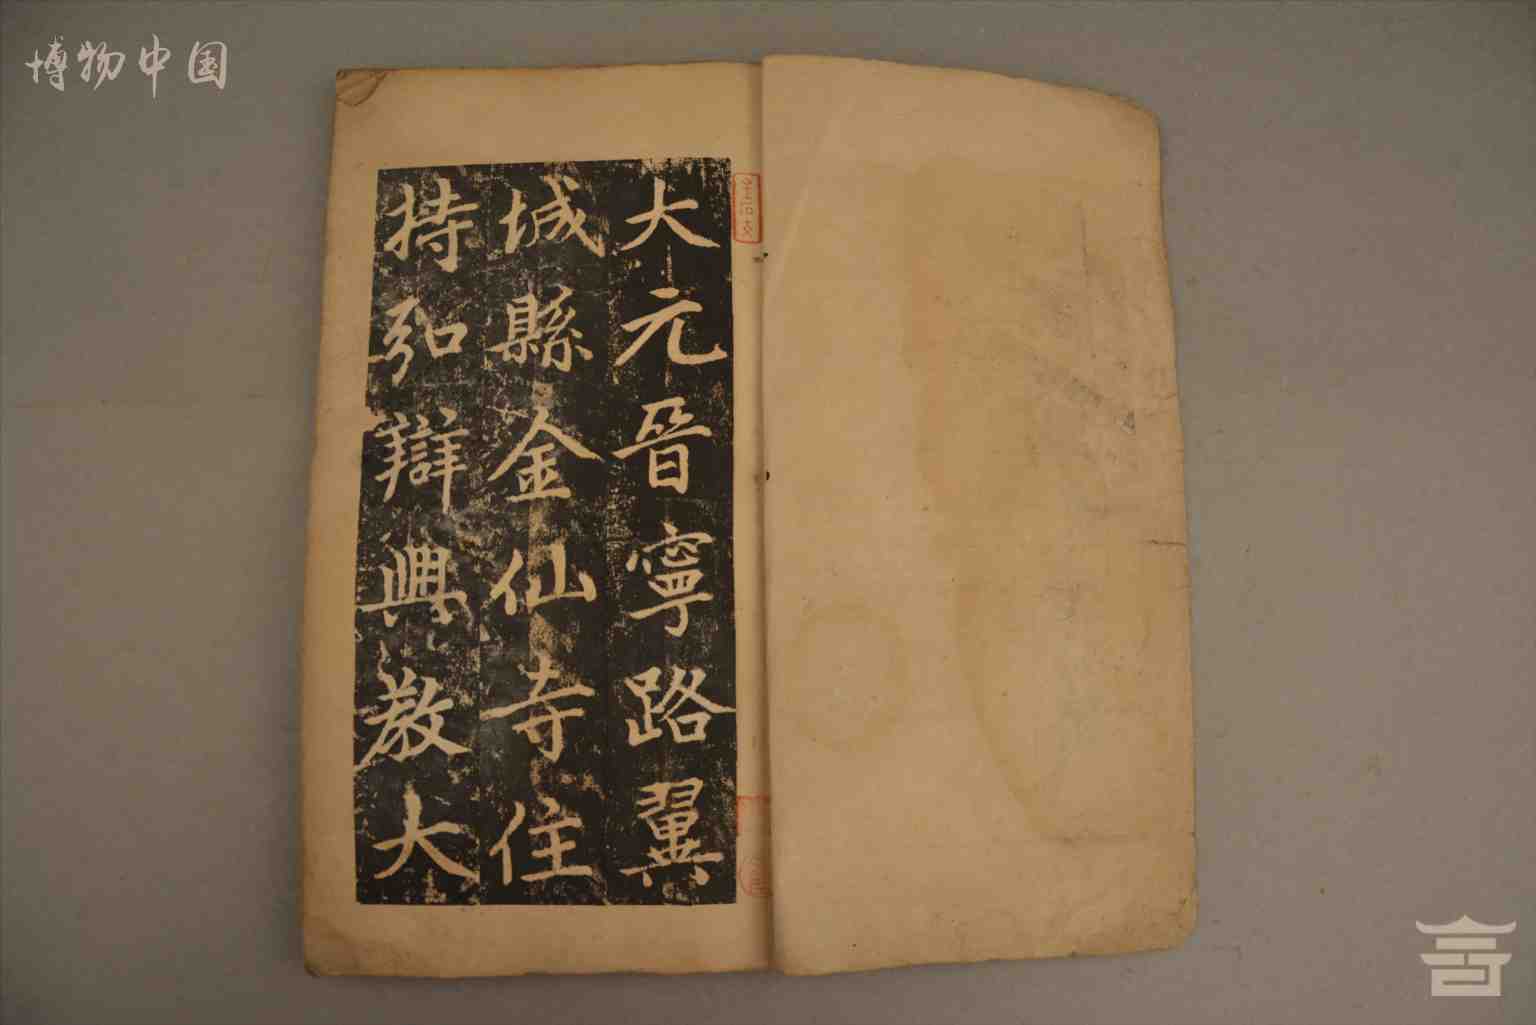 博物中国
大元晉寧路翼
城縣金仙寺住
持弘辯興教大